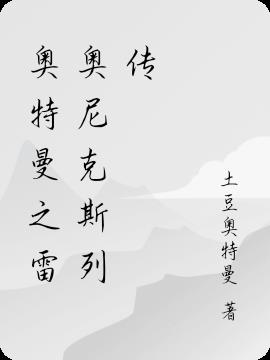 奥特曼之雷
奥尼克斯列
传
土豆奥特曼 著